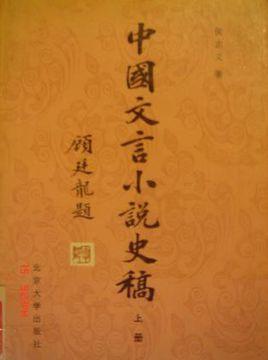 侯忠义 著
中國文言小説史稿
上册
顧廷龍題
北京大学出版社